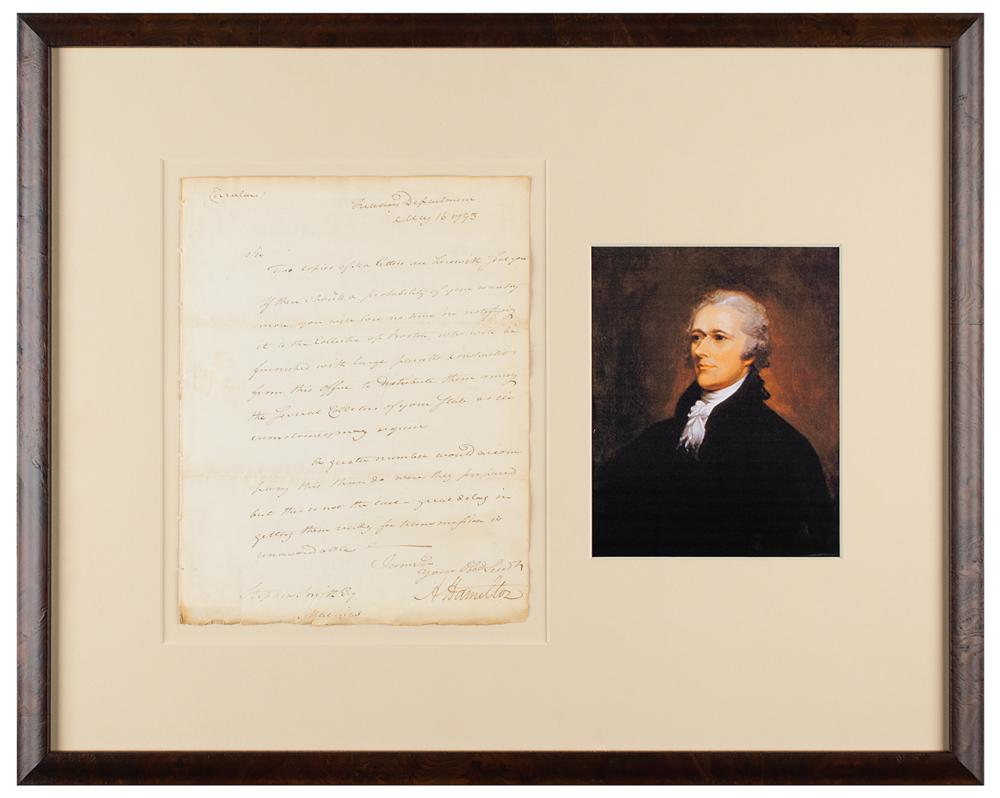 Circular
Treasury Department
May 16 1793
Sir
Two copies of Sea letters are herewith for you
If there should a probability of your wanting
more you will lose no time in notifying
it to the Collector of Boston who will be
furnished with large parcels
from this Office to distribute them among
the Several Collectors of your State as cir
cumstances may require
A greater number would accom
pany this than do were they prepared
but this is not the case – great delay in
getting them ready for transmission is
unavoidable
I am Sir
Your Obed Servt
A Hamilton
Stephen Smith Esq
Machias